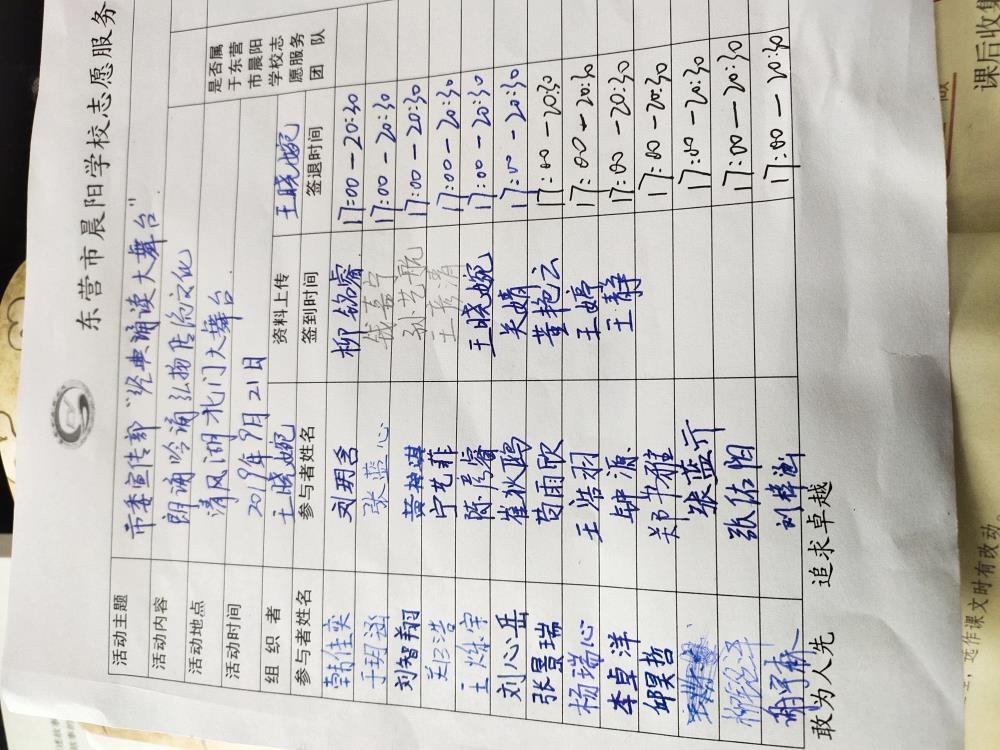 东营市晨阳学校志愿服务
活动主题 市委宣传部“经典诵读大舞台”
活动内容 朗诵吟诵弘扬传统文化
活动地点 清风湖北门大舞台
活动时间 2019年9月21日
组织者 王晓婉 资料上传 王晓婉
是否属于东营市晨阳学校志愿服务团队
参与者姓名 参与者姓名 签到时间 签退时间
韩佳奕 刘玥含 柳铭睿 17:00-20:30
于玥涵 张蓝心 17:00-20:30
刘智翔 孙艺航 17:00-20:30
宁艺菲 17:00-20:30
王烁宇 陈彦睿 王晓婉 17:00-20:30
刘心岳 崔秋鸥 关婧 17:00-20:30
张景瑞 苟雨欣 董艳云 17:00-20:30
杨瑞心 王浩羽 王婷 17:00-20:30
李卓洋 钟源 王静 17:00-20:30
邱昊哲 郑书雅 17:00-20:30
张蓝亓 17:00-20:30
张佑怡 17:00-20:30
17:00-20:30
敢为人先 追求卓越
课后收集
选作课文时有改动